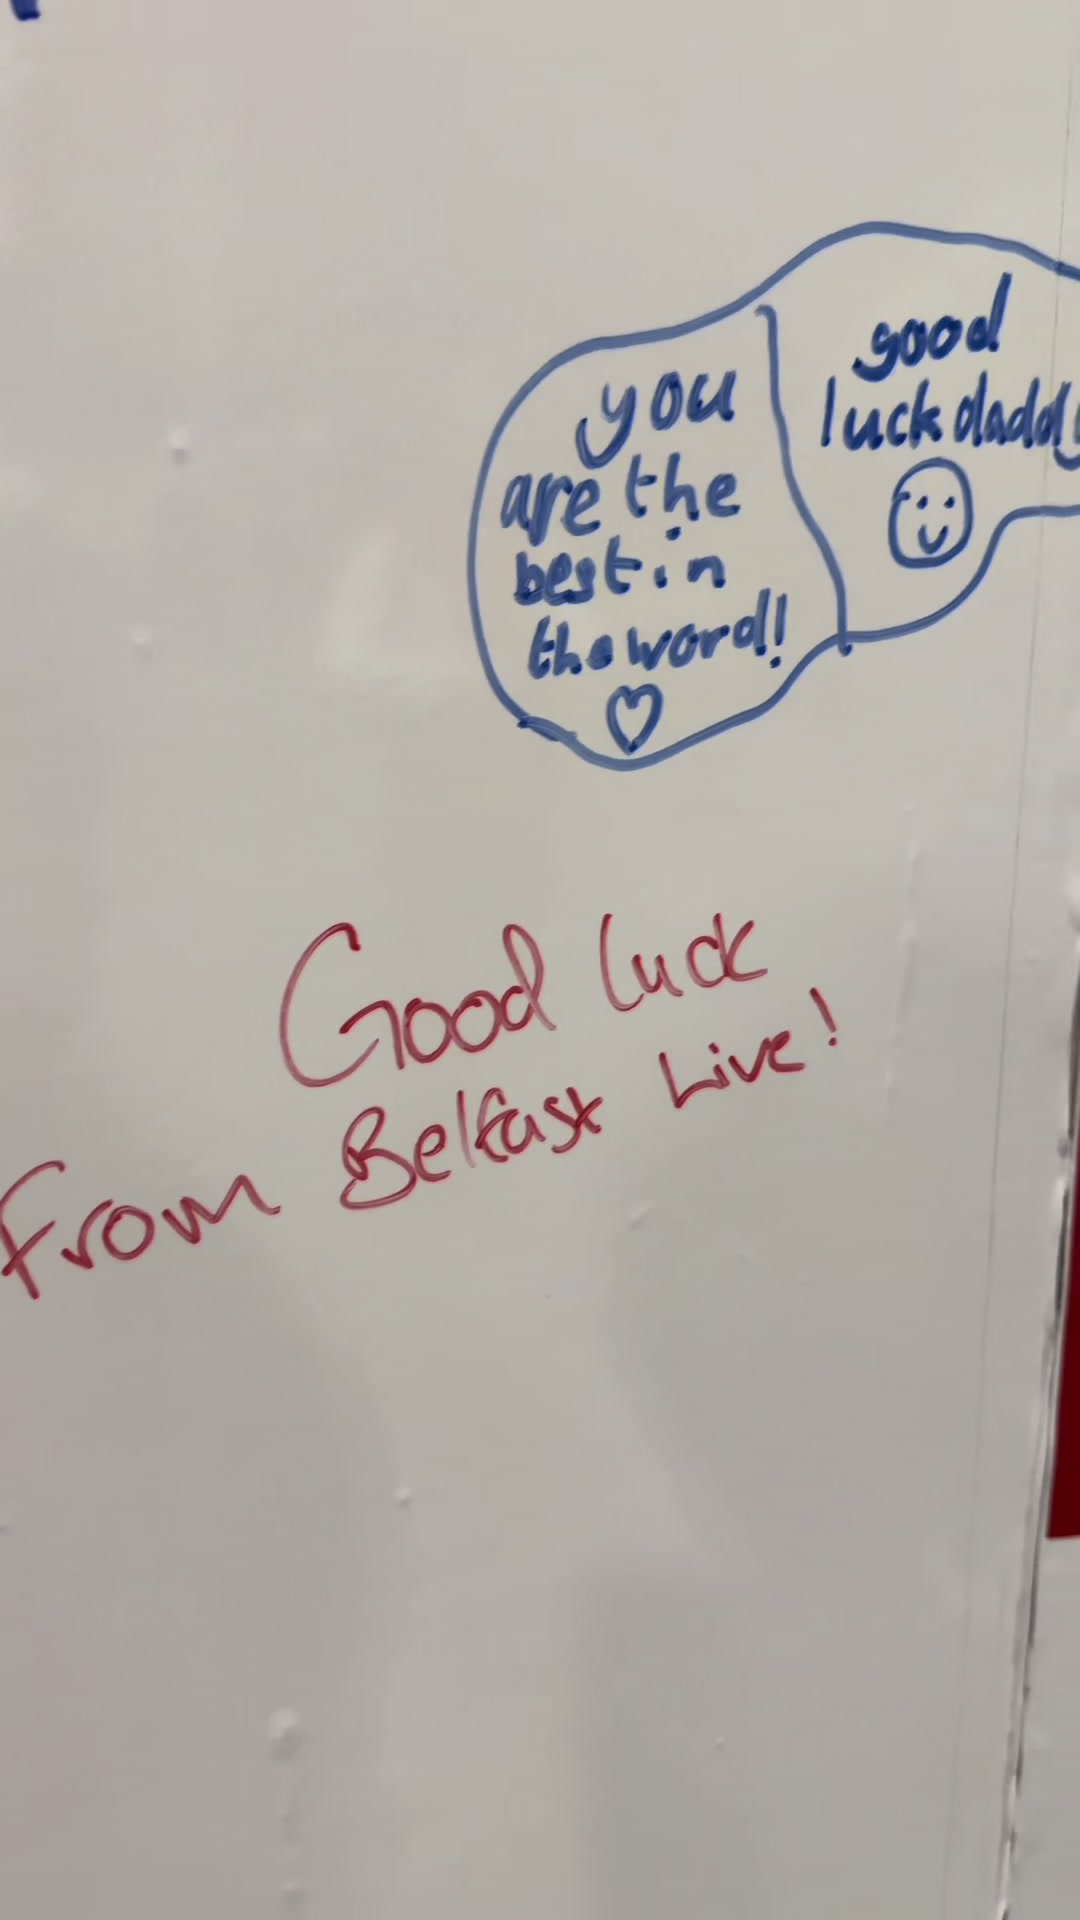 you
are the
best in
the word!
good
luck daddy
Good luck
From Belfast Live!